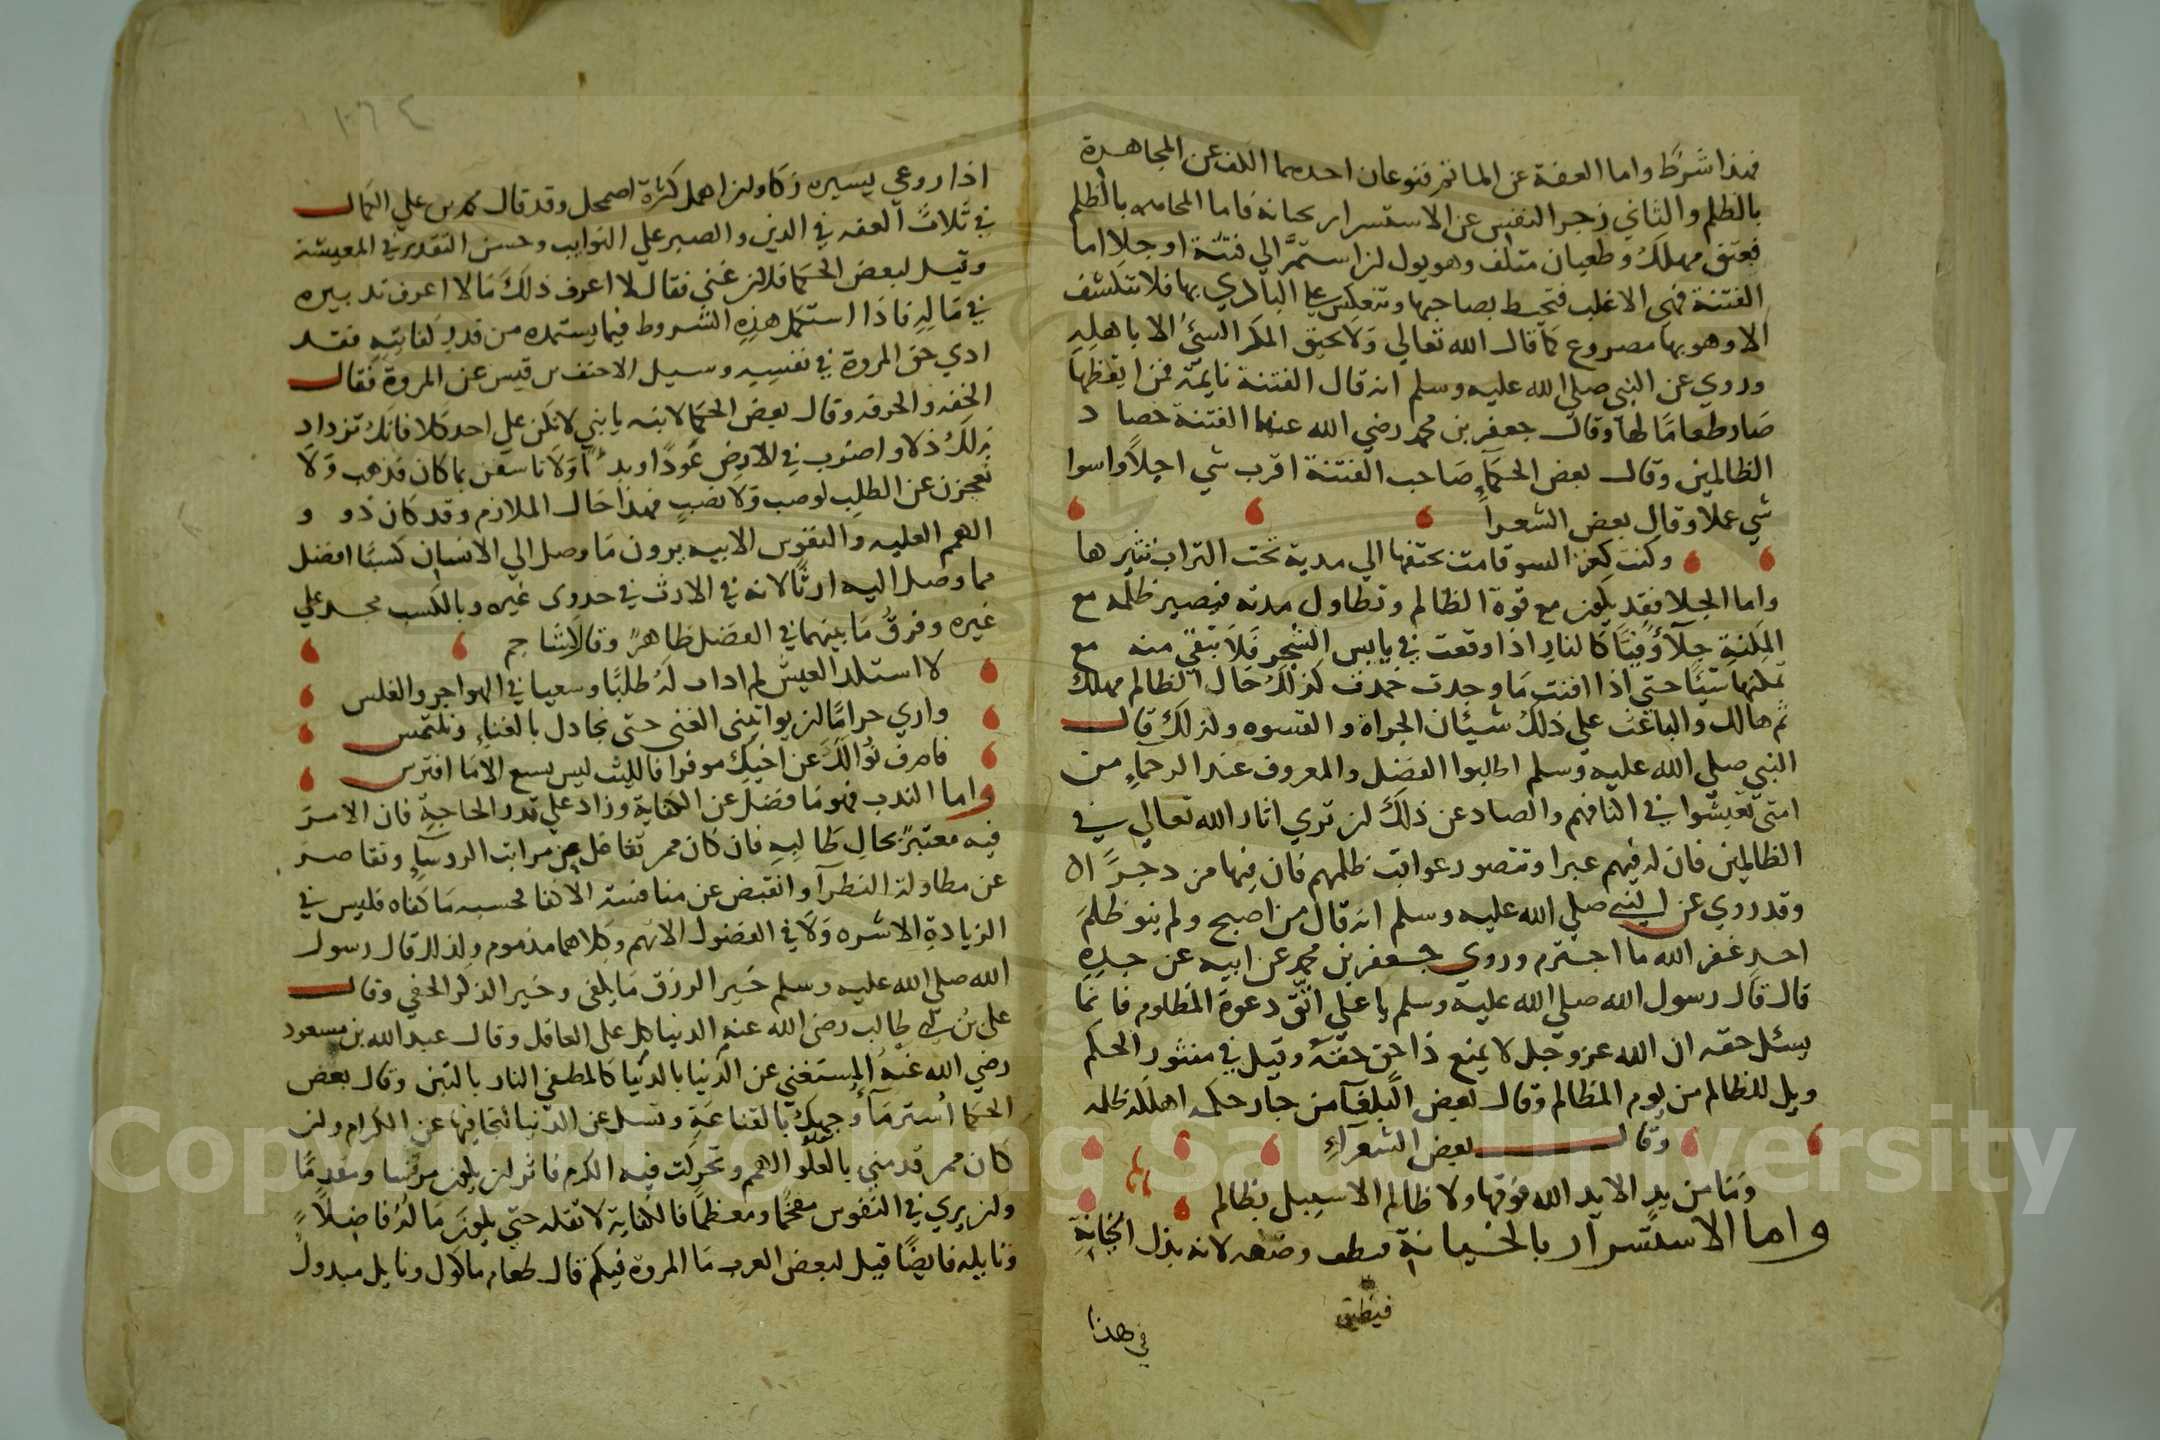 فهذا شرط واما العفة عن الماثم فنوعان احدهما الكف عن المجاهرة
بالظلم والثاني زجر النفس عن الاستسرار بخيانة فاما المجاهره بالظلم
فعتق مهلك وطغيان متلف وهو يول لن استمر الي فتنة او جلا اما
الفتنة فهي الاغلب فتحيط بصاحبها وتنعكس علي البادي بها فلا تنكشف
الا وهو بها مصروع كما قال الله تعالي ولا يحيق المكر السئ الا باهله
وروي عن النبي صلي الله عليه وسلم انه قال الفتنة نايمة فمن ايقظها
صار طعاما لها وقال جعفر بن محمد رضي الله عنهما الفتنة حصاد
الظالمين وقال بعض الحكماء صاحب الفتنة اقرب شي اجلا واسوا
شي عملا وقال بعض الشعرا
وكنت كعنز السو قامت بحتفها الي مدية تحت التراب تثيرها
واما الجلا فقد يكون مع قوة الظالم وتطاول مدته فيصير ظلمه مع
المكنة جلآ وفنا كالنار اذا وقعت في يابس الشجر فلا تبقي منه مع
تمكنها شيئا حتي اذا افنت ما وجدت خمدت كذلك حال الظالم مهلك
ثم هالك والباعث علي ذلك شيئان الجراة والقسوه ولذلك قال
النبي صلي الله عليه وسلم اطلبوا الفضل والمعروف عند الرحماء من
امتي تعيشوا في اكنافهم والصاد عن ذلك لن تري اثار الله تعالي في
الظالمين فان له فيهم عبرا وتتصور عواقب ظلمهم فان فيها مزدجرا
وقد روي عن النبي صلي الله عليه وسلم انه قال من اصبح ولم ينو ظلم
احد غفر الله ما اجترم وروي جعفر بن محمد عن ابيه عن جده
قال قال رسول الله صلي الله عليه وسلم يا علي اتق دعوة المظلوم فانما
يسئل حقه ان الله عز وجل لا يمنع ذا حق حقه وقيل في منثور الحكم
ويل للظالم من يوم المظالم وقال بعض البلغآ من جار حكمه اهلكه ظلمه
وقال بعض الشعرآء
وما من يد الا يد الله فوقها ولا ظالم الا سيبلي بظالم
واما الاستسرار بالخيانة وضعه لانه بذل الخيانة
في هذا
١٠٦٢
اذا روعي يسيره زكا ولن اهمل كثرة اضمحل وقد قال محمد بن علي الكمال
في ثلاث العفه في الدين والصبر علي النوايب وحسن التقدير في المعيشة
وقيل لبعض الحكما فلان غني فقال لا اعرف ذلك ما لا اعرف تدبيره
في ماله فاذا استكمل هذه الشروط فيما يستمده من قدر كفايته فقد
ادي حق المروة في نفسه وسيل الاحنف بن قيس عن المروة فقال
الخفه والحرفه وقال بعض الحكما لابنه يابني لا تكن علي احد كلا فانك تزداد
بذلك ذلا واضرب في الارض عودا وبدءا ولا تاسفن بما كان فذهب ولا
تعجزن عن الطلب لوصب ولا نصب فهذا حال الملازم وقد كان ذو و
الهمم العليه والنفوس الابيه يرون ما وصل الي الانسان كسبا افضل
مما وصل اليه ارثا لانه في الارث في جدوي غيره وبالكسب مجد علي
غيره وفرق ما بينهما في الفضل ظاهر وقال كشاجم
لا استلذ العيش لم اداب له طلبا وسعيا في الهواجر والغلس
واري حراما لن يواتيني الغني حتي يحاول بالعناء ويلتمس
فاصرف نوالك عن اخيك موفرا فالليث ليس يسع الا ما افترس
واما الندب فهو ما فضل عن الكفاية وزاد علي قدر الحاجة فان الامر
فيه معتبر بحال طالبه فان كان ممن تقاعد عن مراتب الروسآء وتقاصر
عن مطاولة النظرآ وانقبض عن منافسة الاكفا فحسبه ما كفاه فليس في
الزيادة الا شره ولا في الفضول الا نهم وكلاهما مذموم ولذلك قال رسول
الله صلي الله عليه وسلم خير الرزق ما يكفي وخير الذكر الخفي وقال
علي بن ابي طالب رضي الله عنه الدنيا كل علي العاقل وقال عبد الله بن مسعود
رضي الله عنه المستغني عن الدنيا بالدنيا كالمطفي النار بالتبن وقال بعض
الحكما استر مآء وجهك بالقناعة وتسل عن الدنيا لتجافيها عن الكرام ولن
كان ممن قد مني بالعلو الهمم وتحركت فيه الكرم فاثر لن يكون مرئسا ومقدما
ولن يري في النفوس مفخما ومعظما فالكفاية لا تقله حتي يكون ماله فاضلا
ونايله فايضا قيل لبعض العرب ما المروة فيكم قال طعام ماكول ونايل مبذول
Copyright © King Saud University